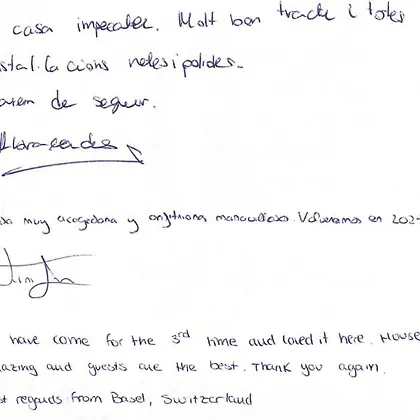 casa impecable. Molt bon tracte i totes
instal·lacions netes i polides.
de segur.
muy acogedora y anfitriones maravillosos. Volveremos en 202
have come for the 3rd time and loved it here. House
azing and guests are the best. Thank you again.
st regards from Basel, Switzerland